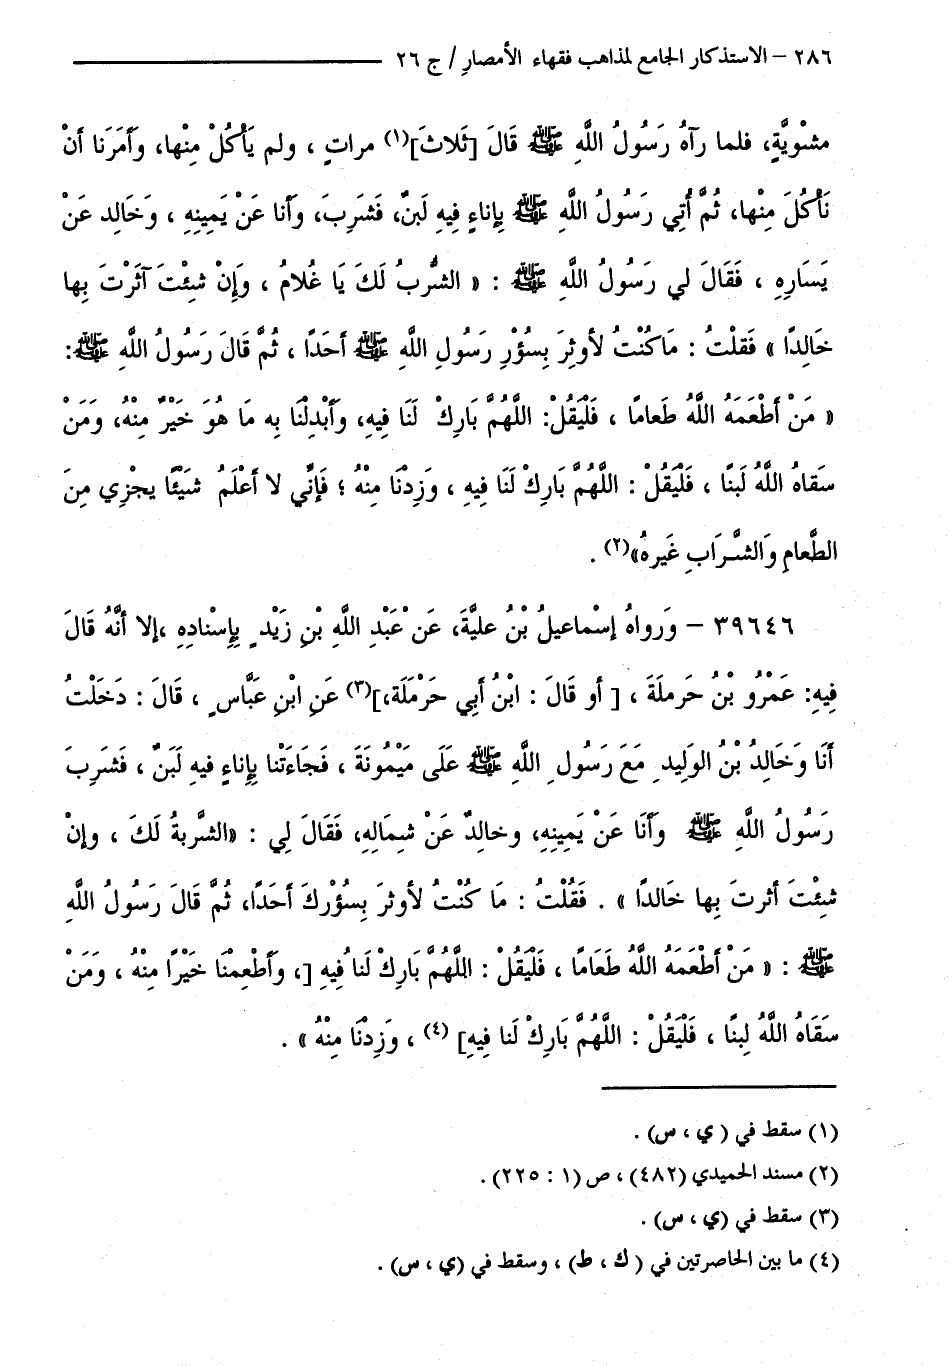 ٢٨٦ – الاستذكار الجامع لمذاهب فقهاء الأمصارِ / ج ٢٦
مشْويَّةٍ، فلما رآهُ رَسُولُ اللَّهِ ﷺ قَالَ [ثَلاثَ](١) مراتٍ ، ولم يَأْكُلْ مِنْها، وَأَمَرَنا أنْ
نَأْكُلَ مِنْها، ثُمَّ أُتِي رَسُولُ اللَّهِ ﷺ بِإناءٍ فِيهِ لَبنٌ، فَشَرِبَ، وَأنا عَنْ يَمِينِهِ ، وَخَالِد عَنْ
يَسَارِهِ ، فَقَالَ لي رَسُولُ اللَّهِ ﷺ : « الشُّربُ لَكَ يَا غُلامُ ، وَإِنْ شِئْتَ آثَرْتَ بِها
خَالِدًا » فَقلْتُ : مَاكُنْتُ لأوثِرَ بِسُؤْرِ رَسُولِ اللَّهِ ﷺ أحَدًا ، ثُمَّ قَالَ رَسُولُ اللَّهِ ﷺ:
« مَنْ أطْعَمَهُ اللَّهُ طَعامًا ، فَلْيَقُلْ: اللَّهُمَّ بَارِكْ لَنَا فِيهِ، وَأَبْدِلْنَا بِه مَا هُوَ خَيْرٌ مِنْهُ، وَمَنْ
سَقاهُ اللَّهُ لَبنًا ، فَلْيَقُلْ : اللَّهُمَّ بَارِكْ لَنَا فِيهِ ، وَزِدْنَا مِنْهُ ؛ فَإنِّي لا أعْلَمُ شَيْئًا يجْزِي مِنَ
الطَّعامِ وَالشَّرَابِ غَيرهُ»(٢) .
٣٩٦٤٦ – وَرواهُ إسْماعيلُ بْنُ عليَّةَ، عَن عَبْدِ اللَّهِ بْنِ زَيْدٍ بِإِسْنادِهِ ،إلا أنَّهُ قَالَ
فِيهِ: عَمْرُو بْنُ حَرملَةَ ، [ أو قَالَ : ابْنُ أبِي حَرْمَلَةَ،](٣) عَنِ ابْنِ عَبَّاسٍ ، قَالَ : دَخَلْتُ
أنَا وَخَالِدُ بْنُ الوَلِيدِ مَعَ رَسُولِ اللَّهِ ﷺ عَلَى مَيْمُونَةَ ، فَجَاءَتْنا بِإناءٍ فيهِ لَبَنٌ ، فَشَرِبَ
رَسُولُ اللَّهِ ﷺ وَأَنَا عَنْ يَمِينِهِ، وخالِدٌ عَنْ شِمَالِهِ، فَقَالَ لِي : «الشَّربةُ لَكَ ، وإنْ
شِئْتَ أثرتَ بِها خَالدًا » . فَقُلْتُ : مَا كُنْتُ لأوثرَ بِسُؤْرِكَ أحَدًا، ثُمَّ قَالَ رَسُولُ اللَّهِ
ﷺ : « مَنْ أطْعَمَهُ اللَّهُ طَعَامًا ، فَلْيَقُلْ : اللَّهُمَّ بَارِكْ لَنا فِيهِ [، وَأَطْعِمْنَا خَيْرًا مِنْهُ ، وَمَنْ
سَقَاهُ اللَّهُ لِبنًا ، فَلْيَقُلْ : اللَّهُمَّ بَارِكْ لَنا فِيهِ] (٤) ، وَزِدْنَا مِنْهُ » .
(١) سقط في ( ي ، س) .
(٢) مسند الحميدي (٤٨٢) ، ص (١ : ٢٢٥) .
(٣) سقط في (ي ، س) .
(٤) ما بين الحاصرتين في ( ك ، ط) ، وسقط في (ي ، س) .